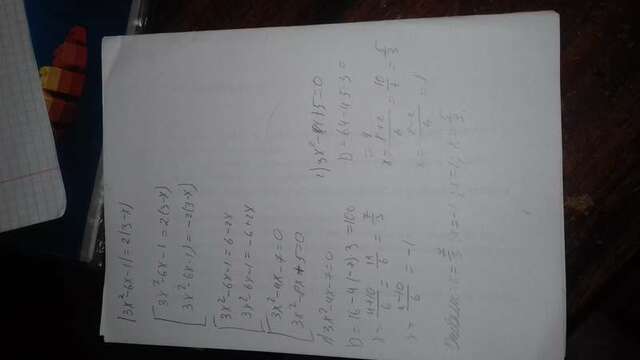 |3x²-6x-1|=2(3-x)
3x²-6x-1=2(3-x)
3x²-6x-1)=-2(3-x)
3x²-6x-1=6-2x
3x²-6x-1=-6+2x
3x²-4x-7=0
3x²-8x+5=0
1) 3x²-4x-7=0
D=16-4·(-7)·3=100
x=4+10/6=14/6=7/3
x=4-10/6=-1
2) 3x²-8x+5=0
D=64-4·5·3=
=4
x=8+2/6=10/6=5/3
x=8-2/6=1
Ответ: x=7/3; x=-1; x=1; x=5/3.